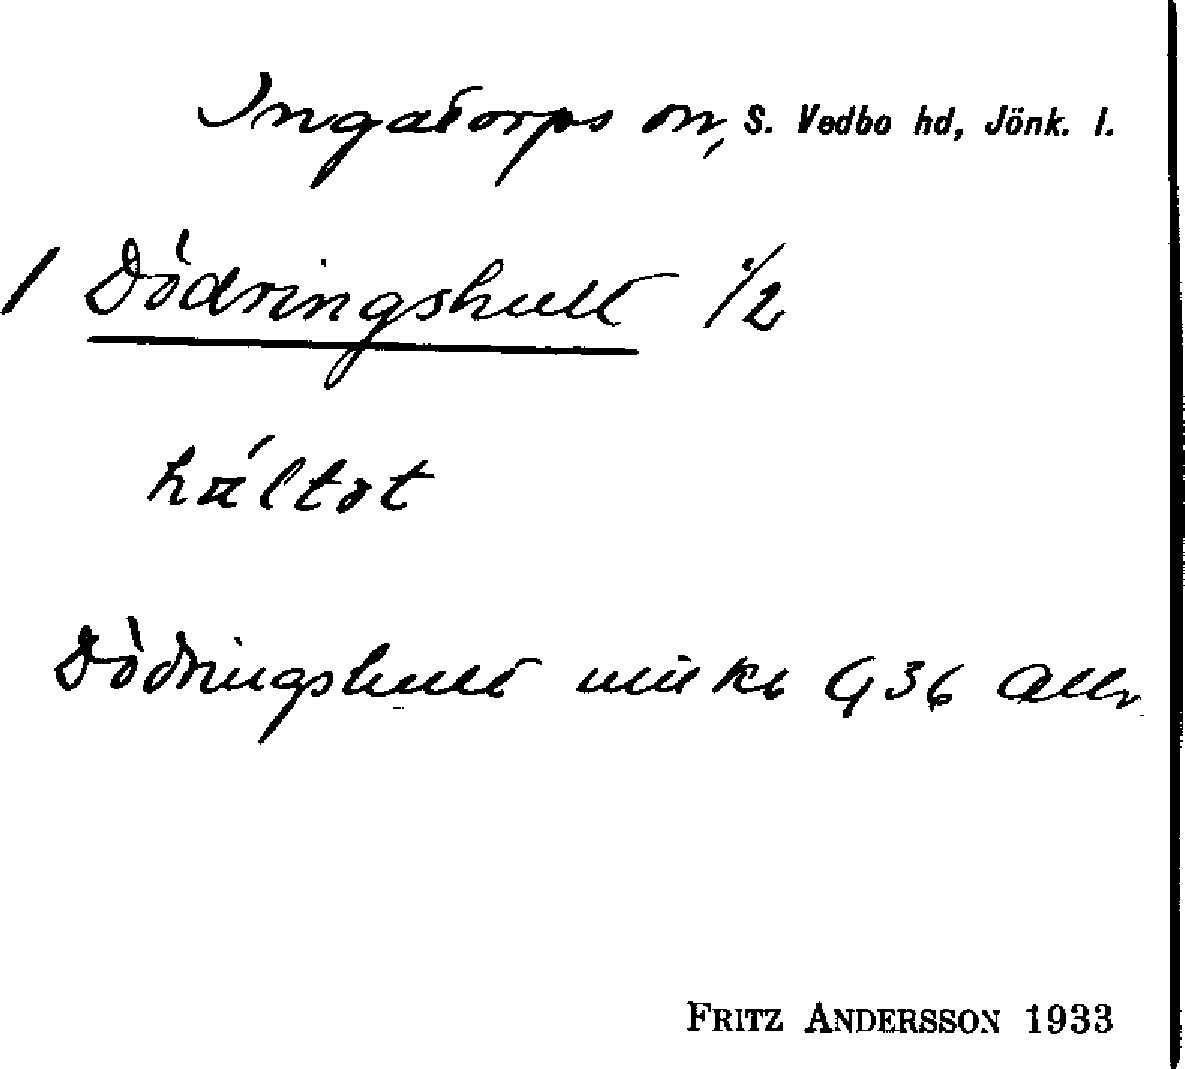 Ingatorps sn, S. Vedbo hd, Jönk. l.
1 Dödringshult 1/2
húltət
Dödringshult utökb G36 Allr
FRITZ ANDERSSON 1933